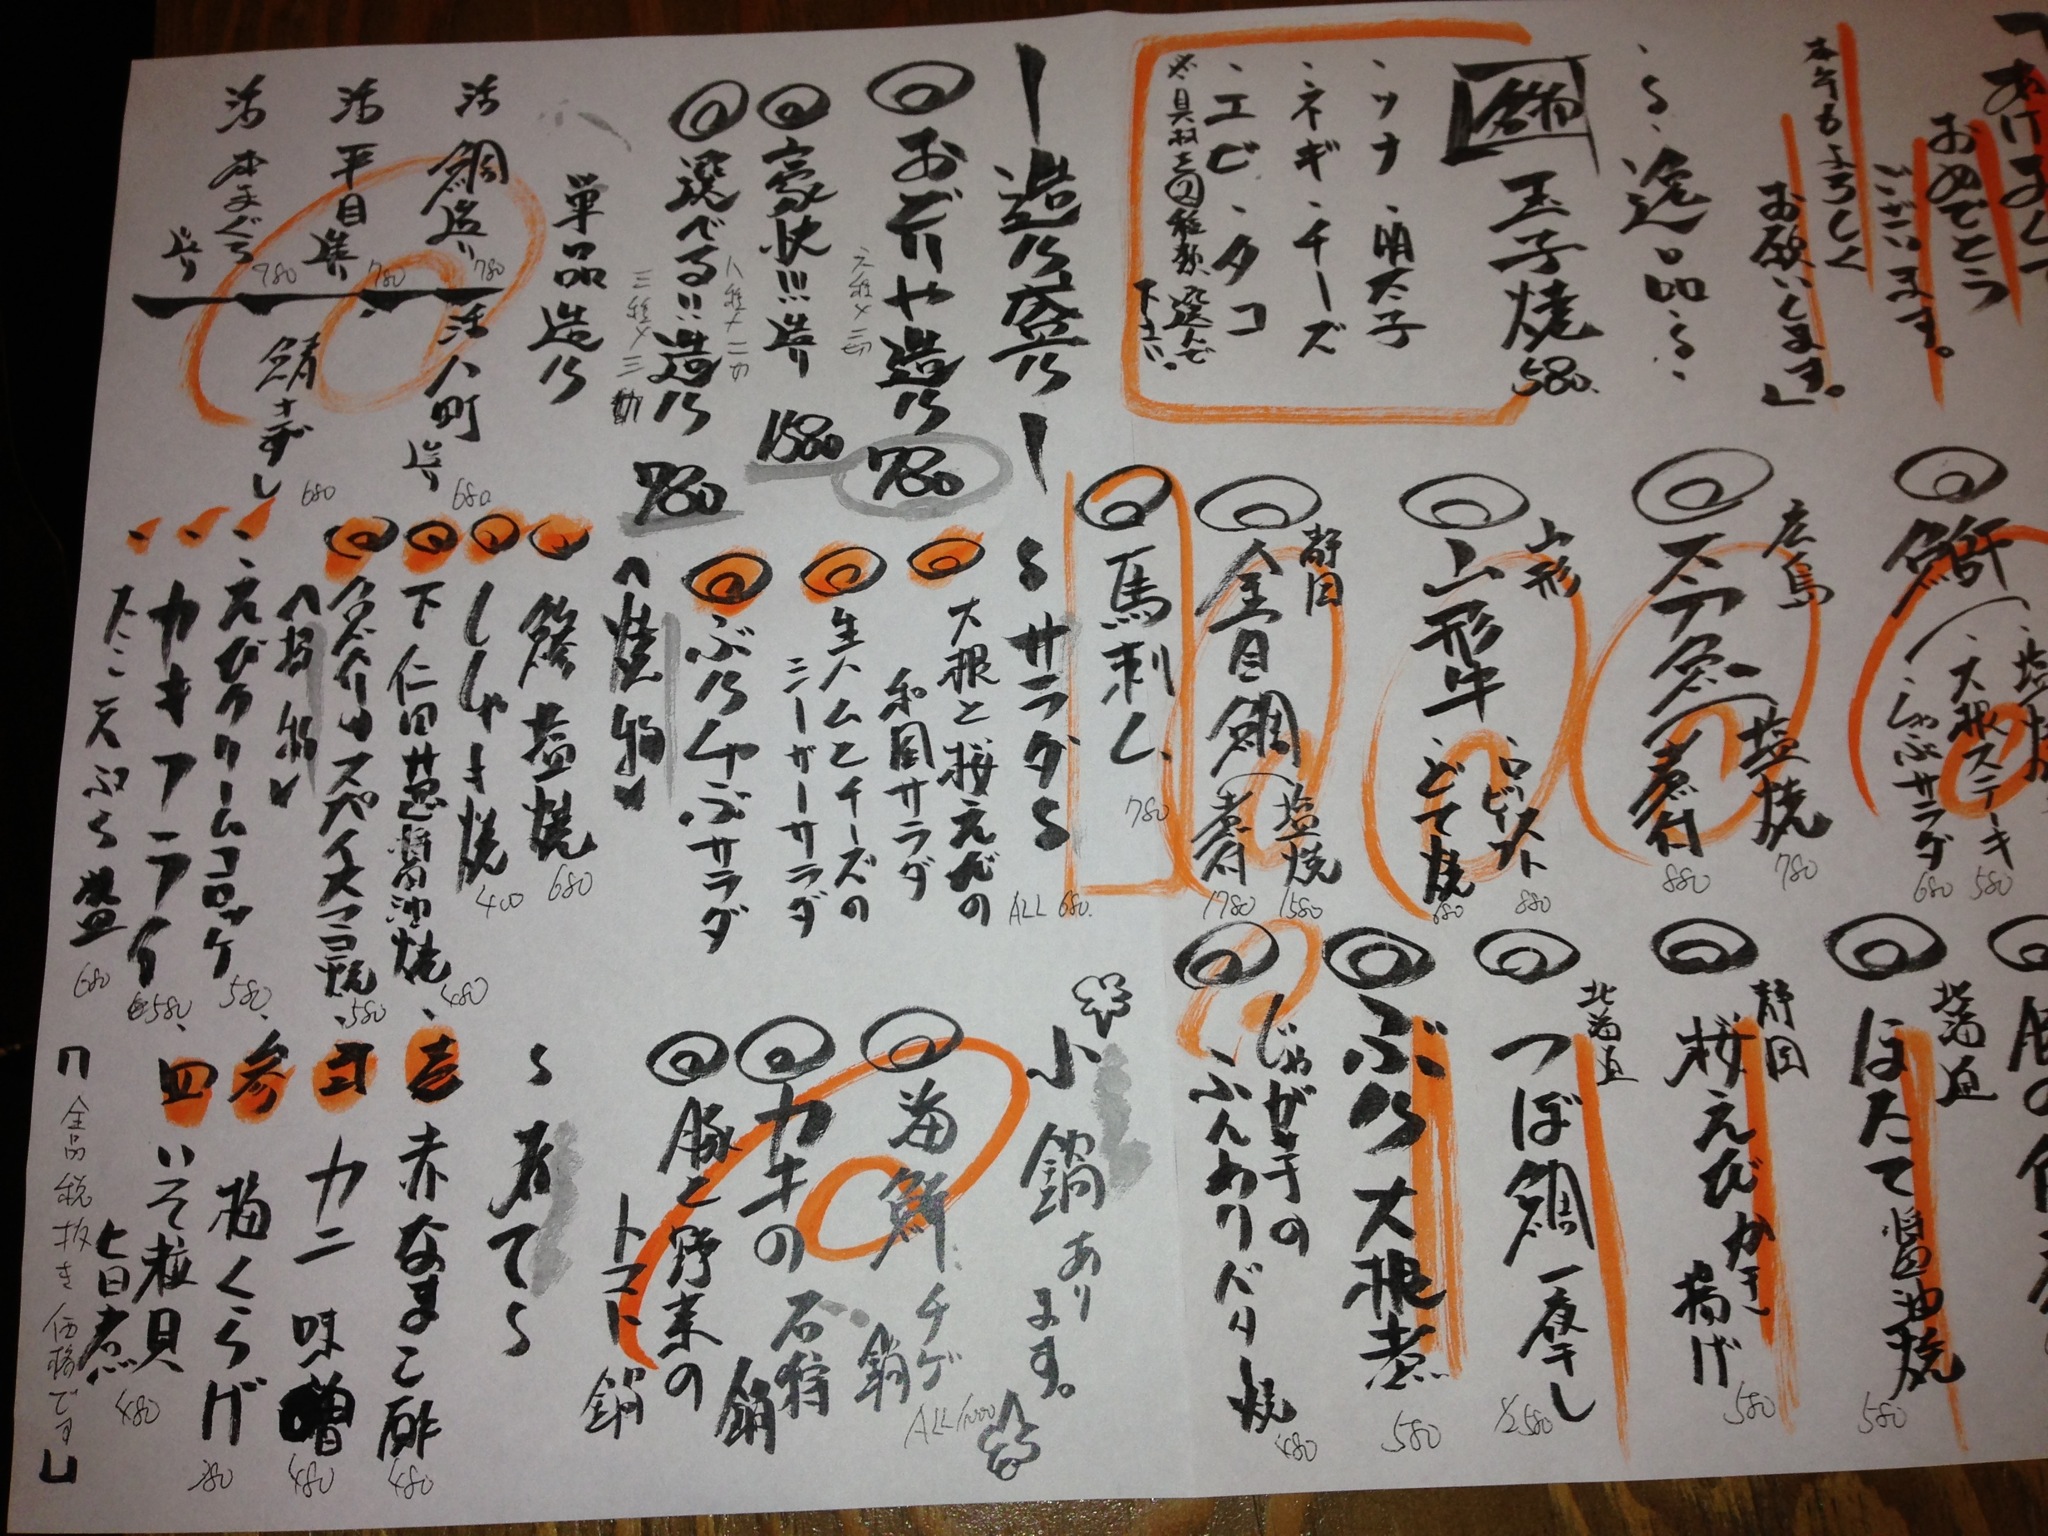 あけまして
おめでとう
ございます。
本年もよろしく
お願いします。」
～逸品～
玉子焼 580.
・ツナ ・明太子
・ネギ ・チーズ
・エビ ・タコ
選んで
下さい。
塩焼
・大根ステーキ 580
・しゃぶサラダ 680
広島
塩焼 780
煮付 880
山形
山形牛
・ローストビーフ 880
・どて焼 680
静岡
金目鯛
塩焼 1580
煮付 1780
馬刺し 780
北海道
ほたて醤油焼 580
静岡
桜えびかき揚げ 580
北海道
つぼ鯛一夜干し 1/2 580
ぶり大根煮 580
じゃが芋の
ふんわりバター焼 480
ー造り盛りー
おどりや造り 780
豪快!!!造り 1580
選べる!!造り 780
単品造り
活 鯛造り 780
活 平目造り 780
活 本まぐろ造り 780
造り 680
鯖きずし 680
～サラダ～ ALL 680.
大根と桜えびの
和風サラダ
生ハムとチーズの
シーザーサラダ
ぶりしゃぶサラダ
〈焼物〉
塩焼 680
ししゃも焼 400
下仁田葱醤油焼 480
スパイスマヨ焼 580
〈揚物〉
・えびクリームコロッケ 580
・カキフライ 580
・たこ天ぷら盛 680
小鍋あります。
ALL/1000
海鮮チゲ鍋
カキの石狩鍋
豚と野菜の
トマト鍋
～あて～
壱 赤なまこ酢 480
弐 カニ味噌 480
参 梅くらげ 380
四 いそ粒貝
旨煮 480
「全品税抜き価格です」